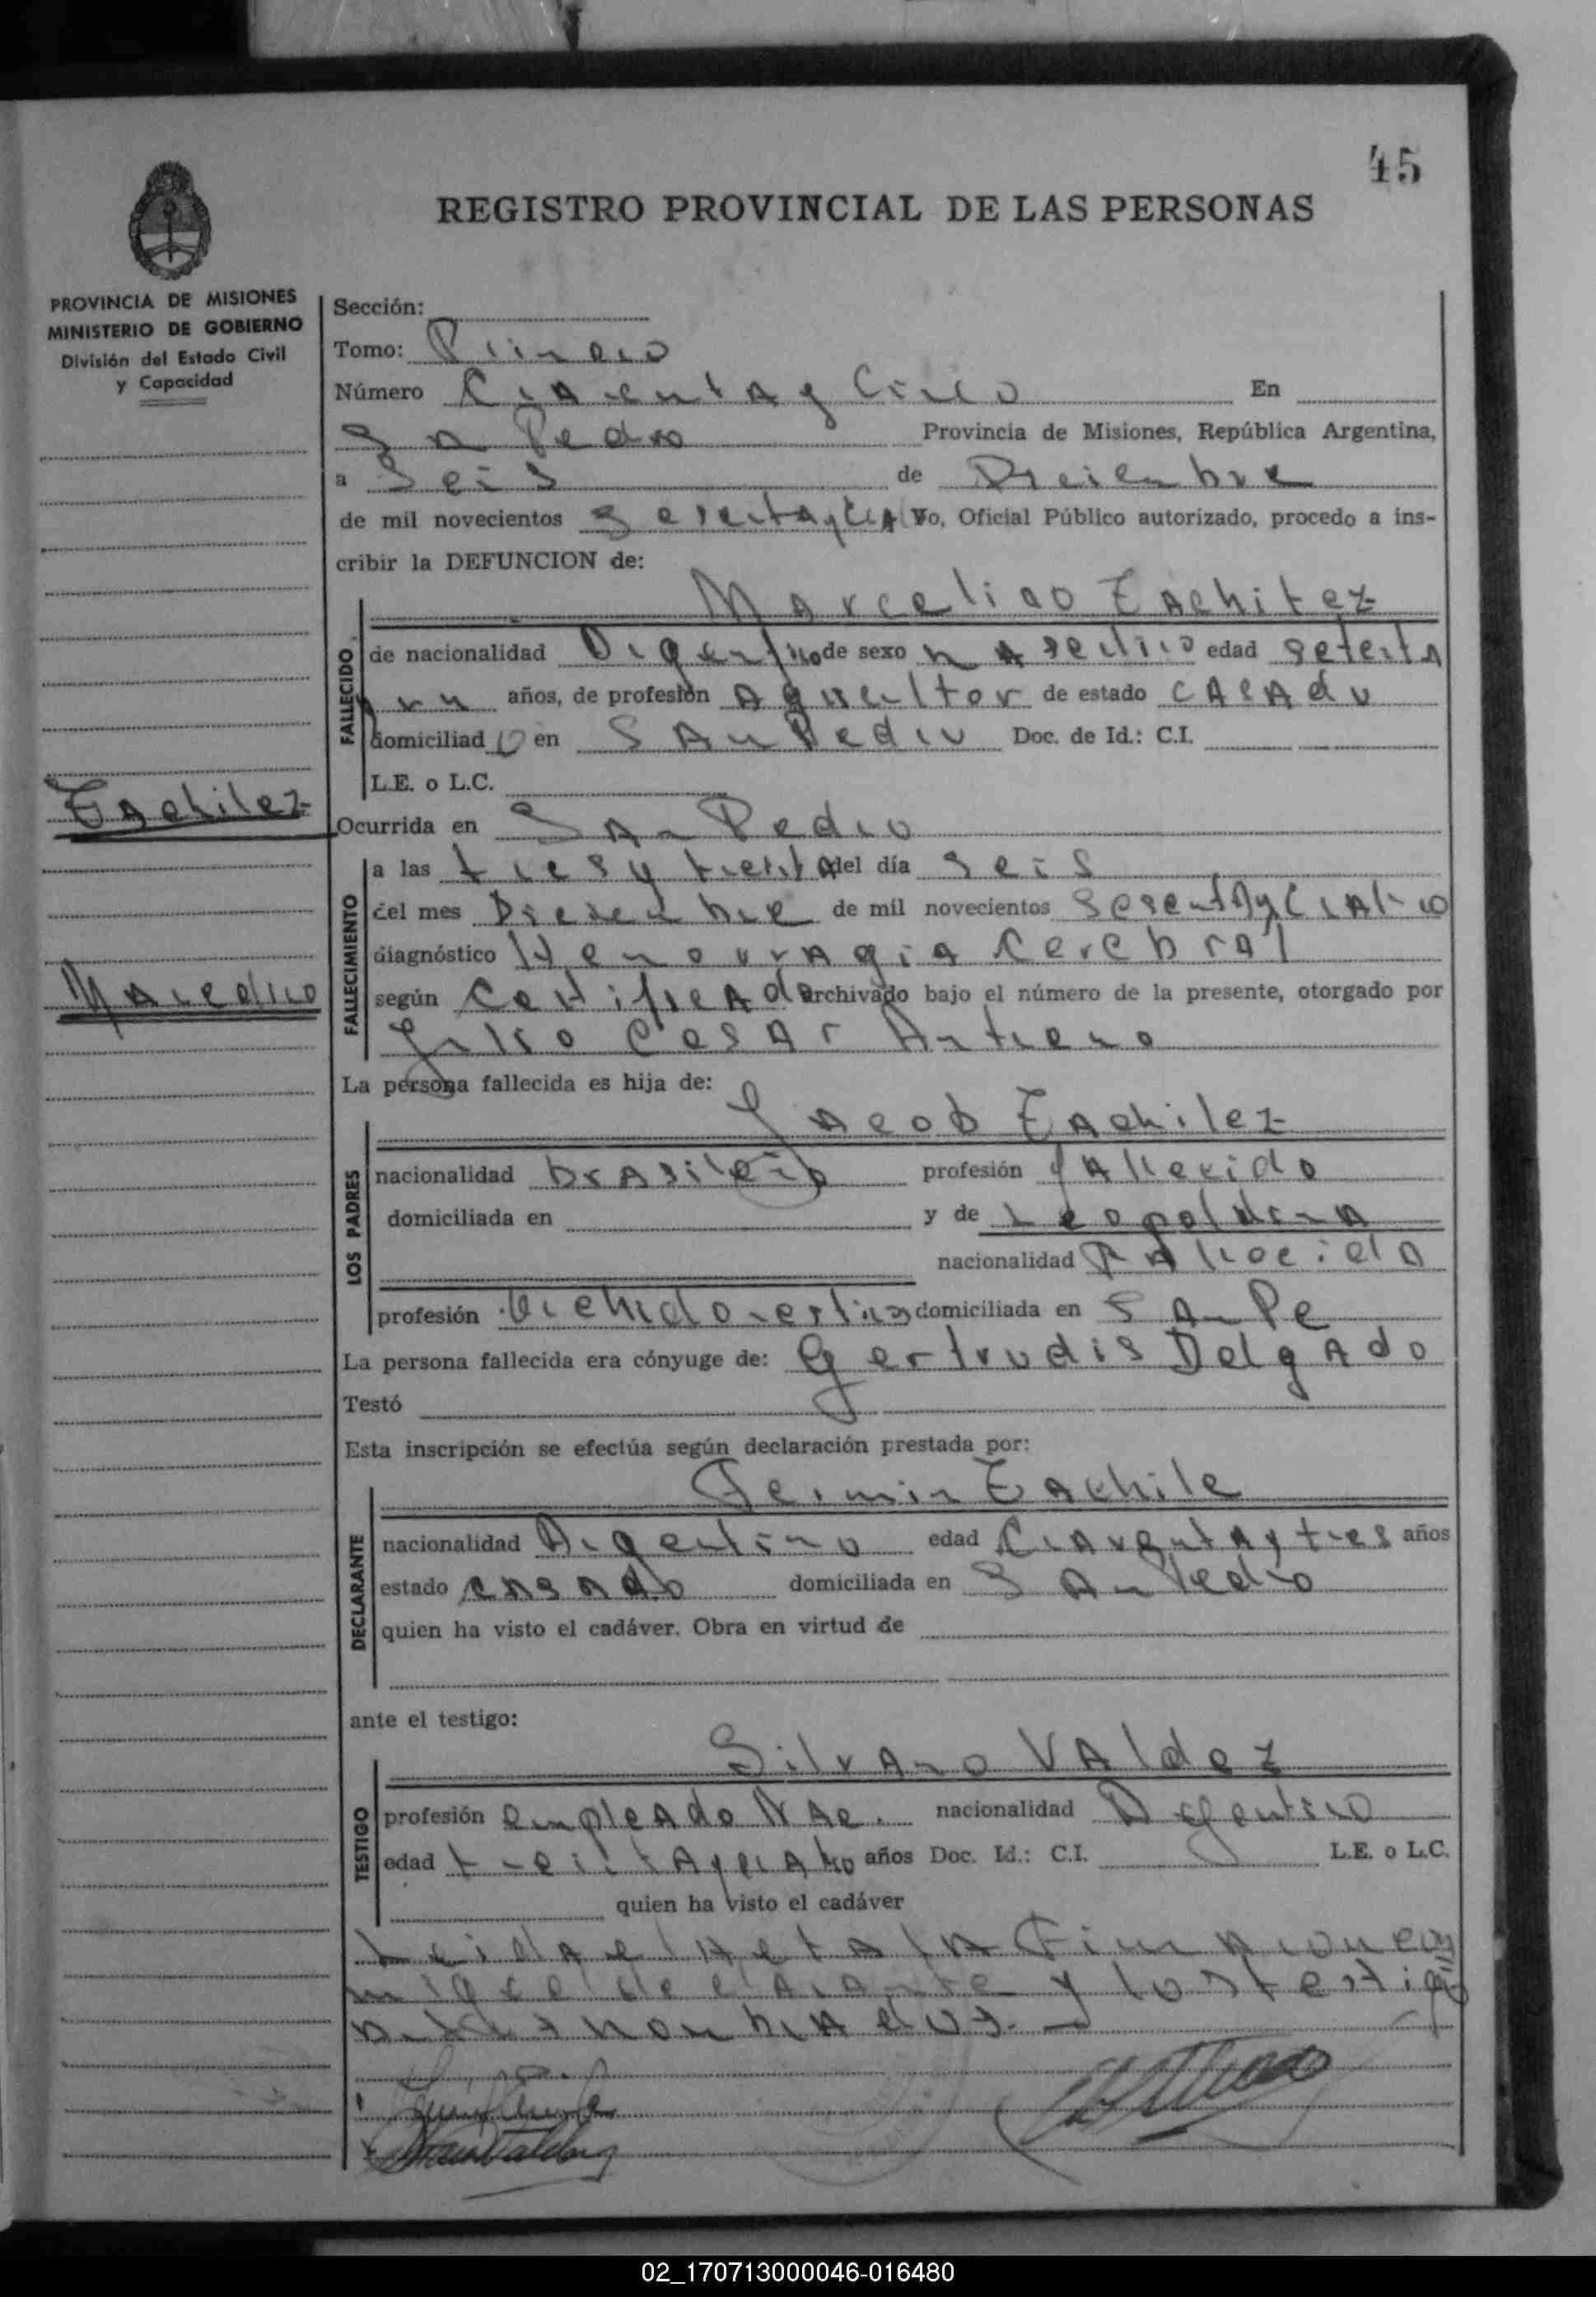 45
REGISTRO PROVINCIAL DE LAS PERSONAS
PROVINCIA DE MISIONES
MINISTERIO DE GOBIERNO
División del Estado Civil
y Capacidad
Sección:
Tomo: Primero
Número Cuarenta y Cinco En
San Pedro Provincia de Misiones, República Argentina,
a Seis de Diciembre
de mil novecientos Yo, Oficial Público autorizado, procedo a ins-
cribir la DEFUNCION de:
Marcelino
FALLECIDO
de nacionalidad Argentino de sexo masculino edad setenta
años, de profesión Agricultor de estado CASAdo
domiciliado en SAn Pedro Doc. de Id.: C.I.
L.E. o L.C.
Ocurrida en SAn Pedro
FALLECIMIENTO
a las tres y treinta del día seis
del mes Diciembre de mil novecientos sesentAy CuAtro
diagnóstico Cerebral
según CertificAdo archivado bajo el número de la presente, otorgado por
Julio CesAr
Marcelino
La persona fallecida es hija de:
JAcob
LOS PADRES
nacionalidad brAsileño profesión fAllecido
domiciliada en y de LeopoldinA
nacionalidad
profesión domiciliada en SAn Pe
La persona fallecida era cónyuge de: Gertrudis DelgAdo
Testó
Esta inscripción se efectúa según declaración prestada por:
Fermin
DECLARANTE
nacionalidad Argentino edad CuArentAy tres años
estado cAsAdo domiciliada en SAn Pedro
quien ha visto el cadáver. Obra en virtud de
ante el testigo:
SilvAno VAldez
TESTIGO
profesión empleAdo NAc. nacionalidad Argentino
edad treintAycuAtro años Doc. Id.: C.I. L.E. o L.C.
quien ha visto el cadáver
LeidA el ActA lA
migo el declArAnte y los testig
02_170713000046-016480